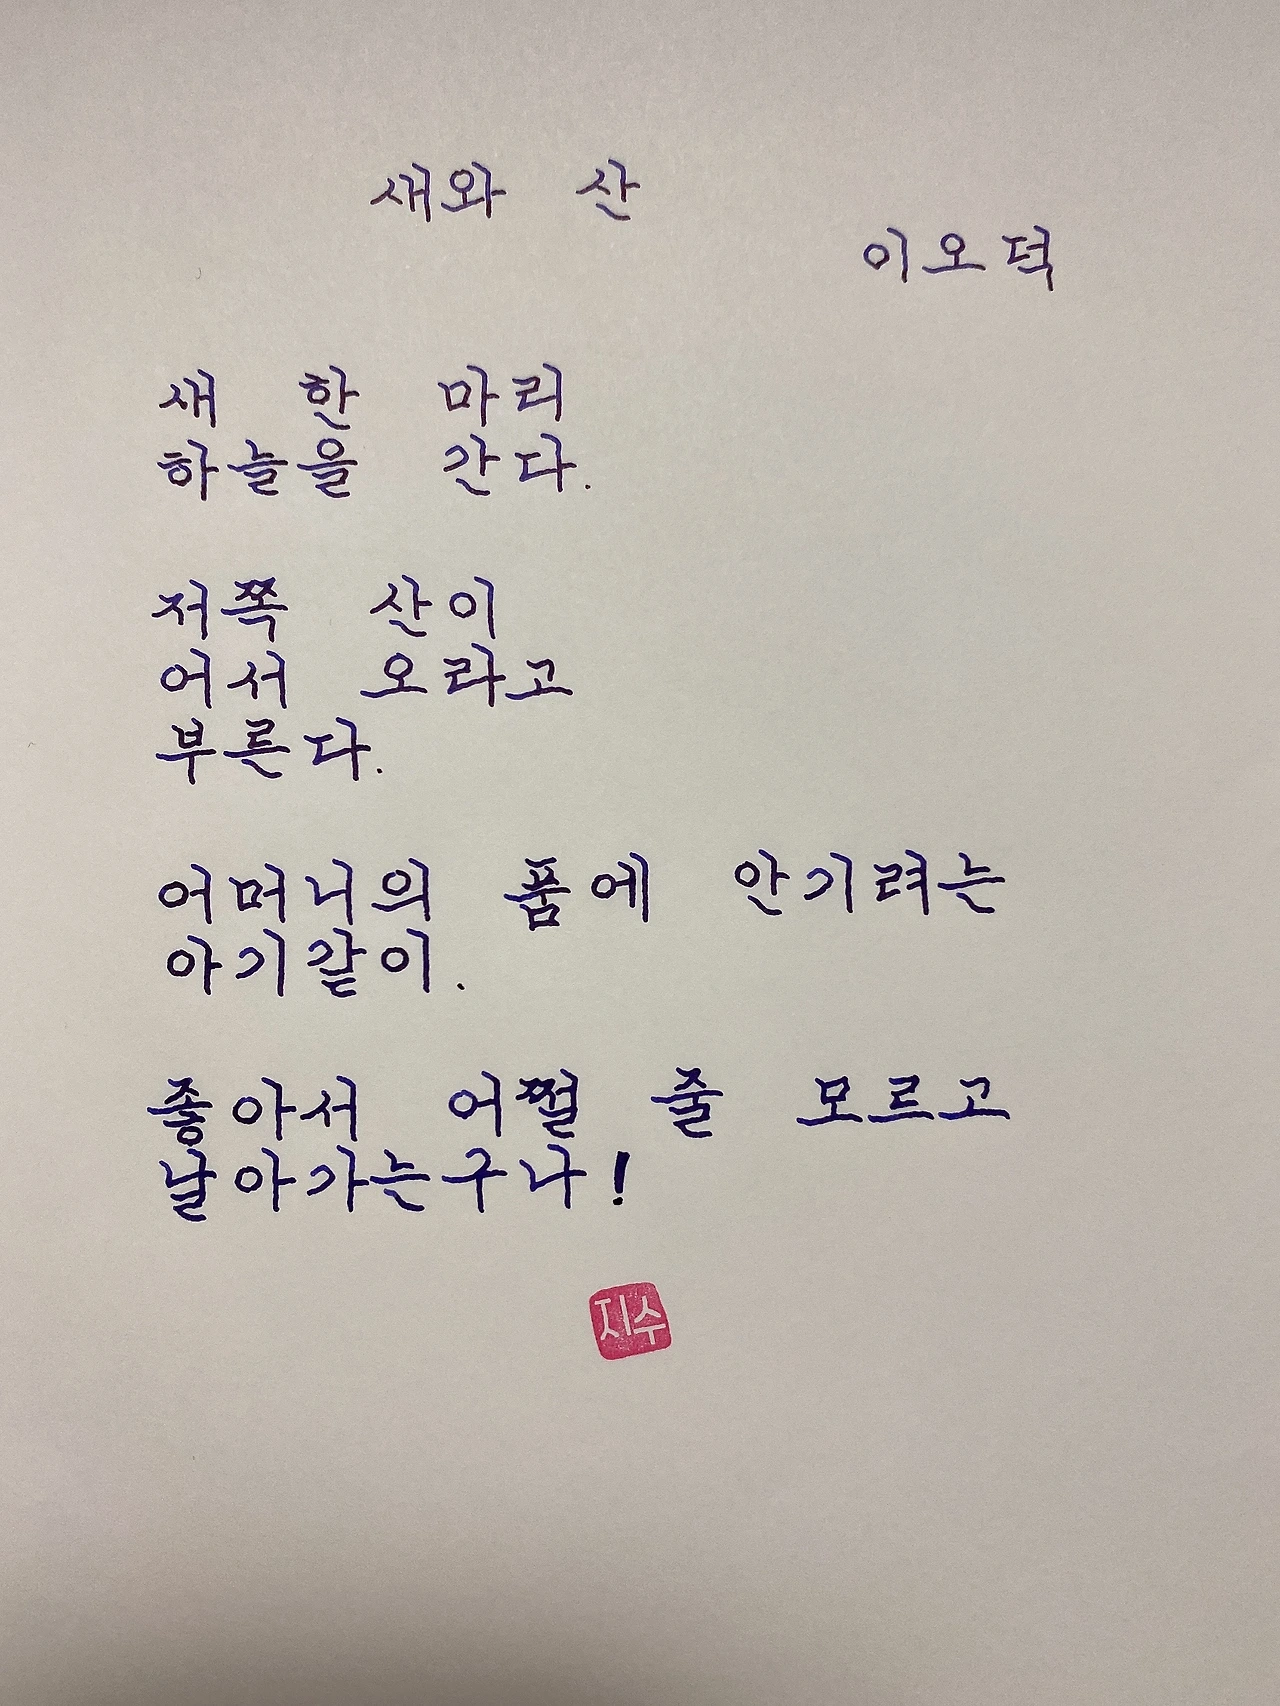 새와 산
이오덕
새 한 마리
하늘을 간다.
저쪽 산이
어서 오라고
부른다.
어머니의 품에 안기려는
아기같이.
좋아서 어쩔 줄 모르고
날아가는구나!
지수